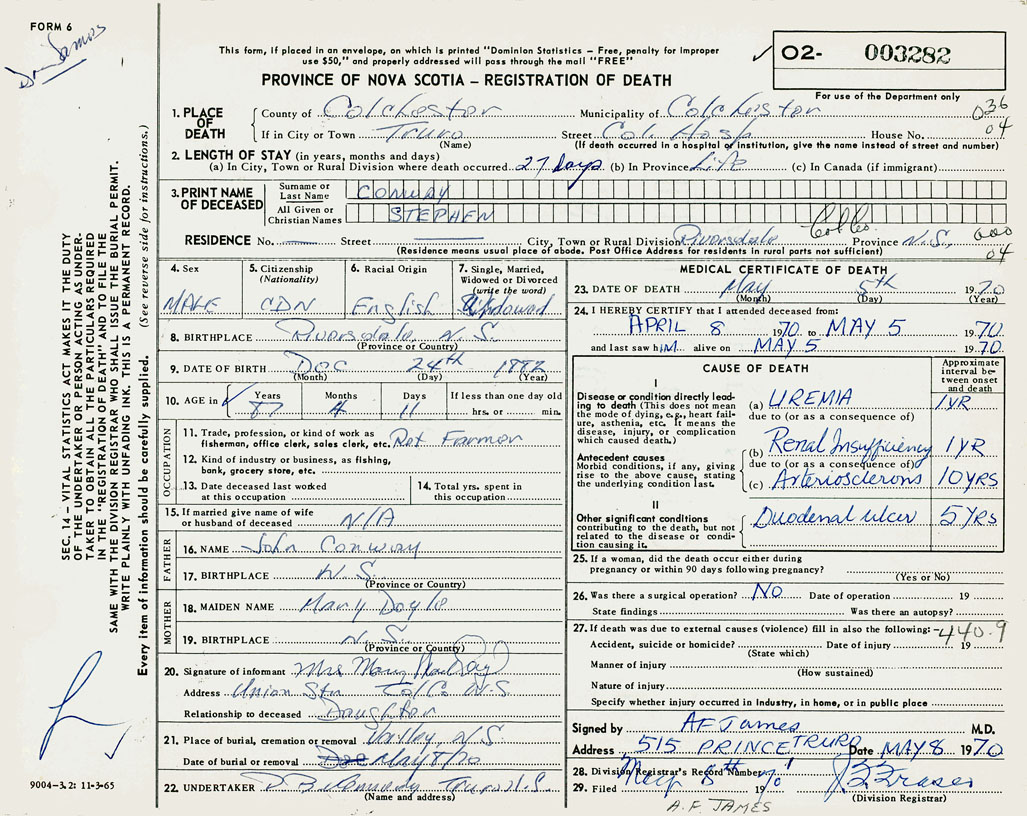 FORM 6
Dr. James
This form, if placed in an envelope, on which is printed "Dominion Statistics – Free, penalty for improper
use $50," and properly addressed will pass through the mail "FREE"
PROVINCE OF NOVA SCOTIA – REGISTRATION OF DEATH
✓ 02- 003282
For use of the Department only
036
04
1. PLACE OF DEATH County of Colchester Municipality of Colchester
If in City or Town Truro Street Col. Hosp House No.
(Name) (If death occurred in a hospital or institution, give the name instead of street and number)
2. LENGTH OF STAY (in years, months and days)
(a) In City, Town or Rural Division where death occurred 27 days (b) In Province Life (c) In Canada (if immigrant)
3. PRINT NAME OF DECEASED
Surname or Last Name CONWAY
All Given or Christian Names STEPHEN
Col Co.
RESIDENCE No. — Street — City, Town or Rural Division Riversdale Province N.S.
000
04
(Residence means usual place of abode. Post Office Address for residents in rural parts not sufficient)
4. Sex MALE
5. Citizenship (Nationality) CDN
6. Racial Origin English
7. Single, Married, Widowed or Divorced (write the word) Widowed
8. BIRTHPLACE Riversdale, N.S.
(Province or Country)
9. DATE OF BIRTH Dec 24th 1882
(Month) (Day) (Year)
10. AGE in ✓ Years 87 Months 4 Days 11 If less than one day old hrs. or min.
OCCUPATION
11. Trade, profession, or kind of work as
fisherman, office clerk, sales clerk, etc. Ret Farmer
12. Kind of industry or business, as fishing,
bank, grocery store, etc.
13. Date deceased last worked
at this occupation
14. Total yrs. spent in
this occupation
15. If married give name of wife
or husband of deceased N/A
FATHER
16. NAME John Conway
17. BIRTHPLACE N.S.
(Province or Country)
MOTHER
18. MAIDEN NAME Mary Doyle
19. BIRTHPLACE N.S.
(Province or Country)
20. Signature of informant Mrs Mary
Address Union Stn Col Co. N.S
Relationship to deceased Daughter
21. Place of burial, cremation or removal Valley, N.S
Date of burial or removal May 8/70
22. UNDERTAKER Truro N.S.
(Name and address)
MEDICAL CERTIFICATE OF DEATH
23. DATE OF DEATH May 5th 1970
(Month) (Day) (Year)
24. I HEREBY CERTIFY that I attended deceased from:
APRIL 8 1970 to MAY 5 1970
and last saw him alive on MAY 5 1970
CAUSE OF DEATH
Approximate interval between onset and death
I
Disease or condition directly leading to death (This does not mean the mode of dying, e.g., heart failure, asthenia, etc. It means the disease, injury, or complication which caused death.)
(a) UREMIA 1 YR
due to (or as a consequence of)
Antecedent causes
Morbid conditions, if any, giving rise to the above cause, stating the underlying condition last.
(b) Renal Insufficiency 1 YR
due to (or as a consequence of)
(c) Arteriosclerosis 10 YRS
II
Other significant conditions
contributing to the death, but not related to the disease or condition causing it.
Duodenal ulcer 5 YRS
25. If a woman, did the death occur either during
pregnancy or within 90 days following pregnancy?
(Yes or No)
26. Was there a surgical operation? No Date of operation 19
State findings Was there an autopsy?
27. If death was due to external causes (violence) fill in also the following: -440.9
Accident, suicide or homicide? Date of injury 19
(State which)
Manner of injury
(How sustained)
Nature of injury
Specify whether injury occurred in industry, in home, or in public place
Signed by AF James M.D.
Address 515 PRINCE TRURO Date MAY 8 1970
28. Division Registrar's Record Number
29. Filed May 8th 1970 Fraser
(Division Registrar)
A.F. JAMES
SEC. 14 – VITAL STATISTICS ACT MAKES IT THE DUTY
OF THE UNDERTAKER OR PERSON ACTING AS UNDER-
TAKER TO OBTAIN ALL THE PARTICULARS REQUIRED
IN THE "REGISTRATION OF DEATH" AND TO FILE THE
SAME WITH THE DIVISION REGISTRAR WHO SHALL ISSUE THE BURIAL PERMIT.
WRITE PLAINLY WITH UNFADING INK. THIS IS A PERMANENT RECORD.
Every item of information should be carefully supplied. (See reverse side for instructions.)
9004–3.2: 11-3-65